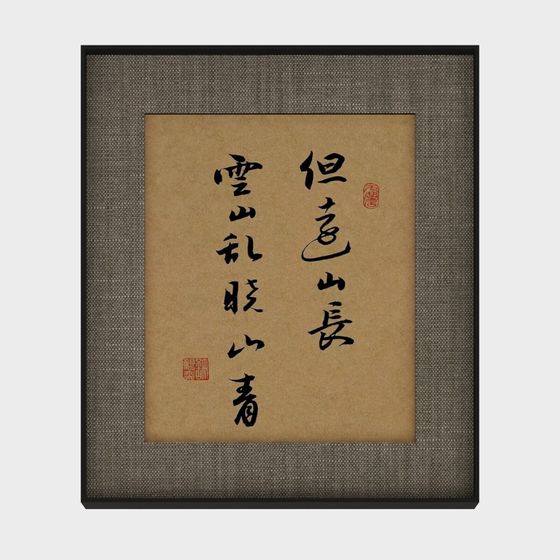 但遠山長
雲山乱曉山青